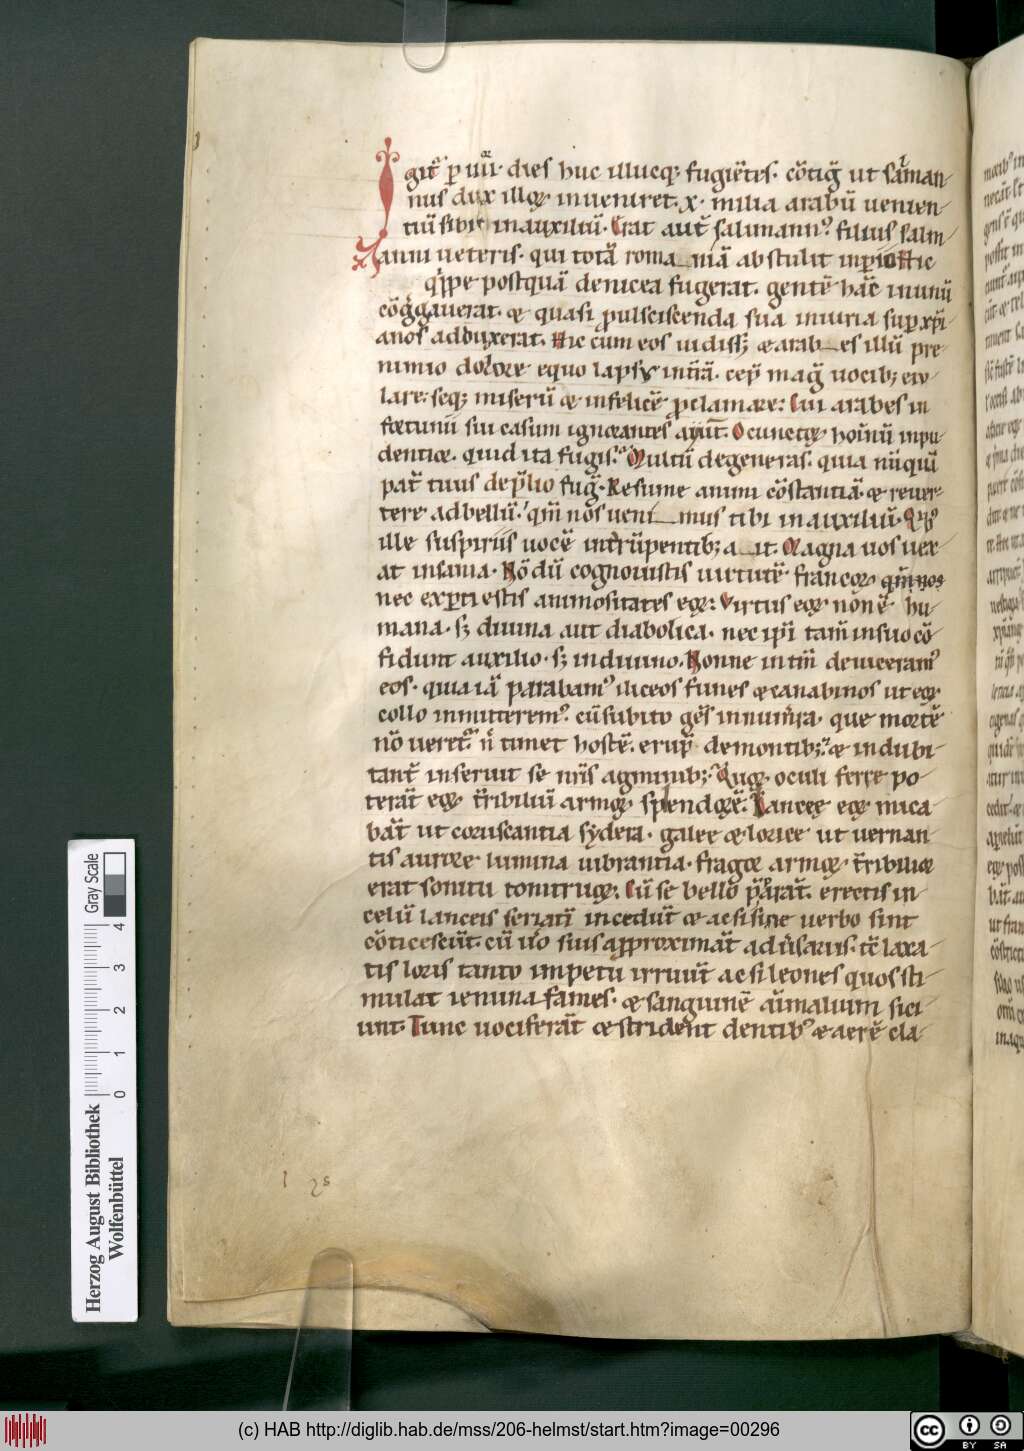 Igit᷑ p̱ iiii̅or dies huc illucq; fugie̅tes. co̅tig̅ ut sala̅man
nus dux illoꝝ inueniret .x. milia arabu̅ uenien
tiu̅ sibi in auxiliu̅. Erat aut̅ salimann᷒ filius salim
anni ueteris. qui tota̅ roma niā abstulit inp̱io. Hic
q̅ppe postqua̅ denicea fugerat. gente̅ ha̅c inunu̅
co̅g̅gauerat. & quasi p̱ulsciscenda sua iniuria sup̱ xp̅i
anos adduxerat. Hic cum eos uidiss; & arab es illu̅ pre
nimio dolore equo lapsu̅ int̅ra̅. cep̅ mag̅ uocib; eiu
lare. seq; miseru̅ & infelice̅ p̱clamare. Cui arabes in
fortunii sui casum ignorantes aiu̅t. O cunctoꝝ homi̅nu̅ inpu
dentior. quid ita fugis? Multu̅ degeneras. quia nu̅qua̅
pat̅ tuus dep̅lio fug̅. Resume animi co̅stantia̅. & reuer
tere ad bellu̅. q̅m nos ueni mus tibi in auxiliu̅. Quib᷒
ille suspiriis uoce̅ int̅ru̅pentib; a it. Magna uos uex
at insania. No̅du̅ cognouistis uirtute̅ francoꝝ q̅m nos
nec exp̱ti estis animositates eoꝝ. Virtus eoꝝ non e̅ hu
mana. s; diuina aut diabolica. nec ip̅i tam̅ in suo co̅
fidunt auxilio. s; in diuino. Nonne int̅m deuiceram᷒
eos. quia ia̅ parabam᷒ iliceos funes & canabinos ut eoꝝ
collo inmitterem᷒. cu̅ subito ge̅s innum̅ra. que morte̅
no̅ ueret᷑. n̅ timet hoste̅. erup̅ de montib;. & indubi
tant̅ inseruit se nr̅is agminib;. Quoꝝ oculi ferre po
tera̅t eoꝝ t̅ribiliu̅ armoꝝ splendore̅. Lancee eoꝝ mica
ba̅t ut coruscantia sydera. galee & loricę ut uernan
tis aurore lumina uibrantia. fragor armoꝝ t̅ribilior
erat sonitu tonitruoꝝ. Cu̅ se bello p̅para̅t. erectis in
celu̅ lanceis seriati̅ incedu̅t & ac si sine uerbo sint
co̅ticescu̅t. cu̅ u̅o suis app̱roxima̅t adu̅sariis. tc̅ laxa
tis loris tanto impetu irruu̅t ac si leones quos sti
mulat ieiuna fames. & sanguine̅ a̅nimalium sici
unt. Tunc uocifera̅t & strident dentib᷒ & aere̅ cla
Gray Scale
0 1 2 3 4
Herzog August Bibliothek
Wolfenbüttel
(c) HAB http://diglib.hab.de/mss/206-helmst/start.htm?image=00296
cc BY SA